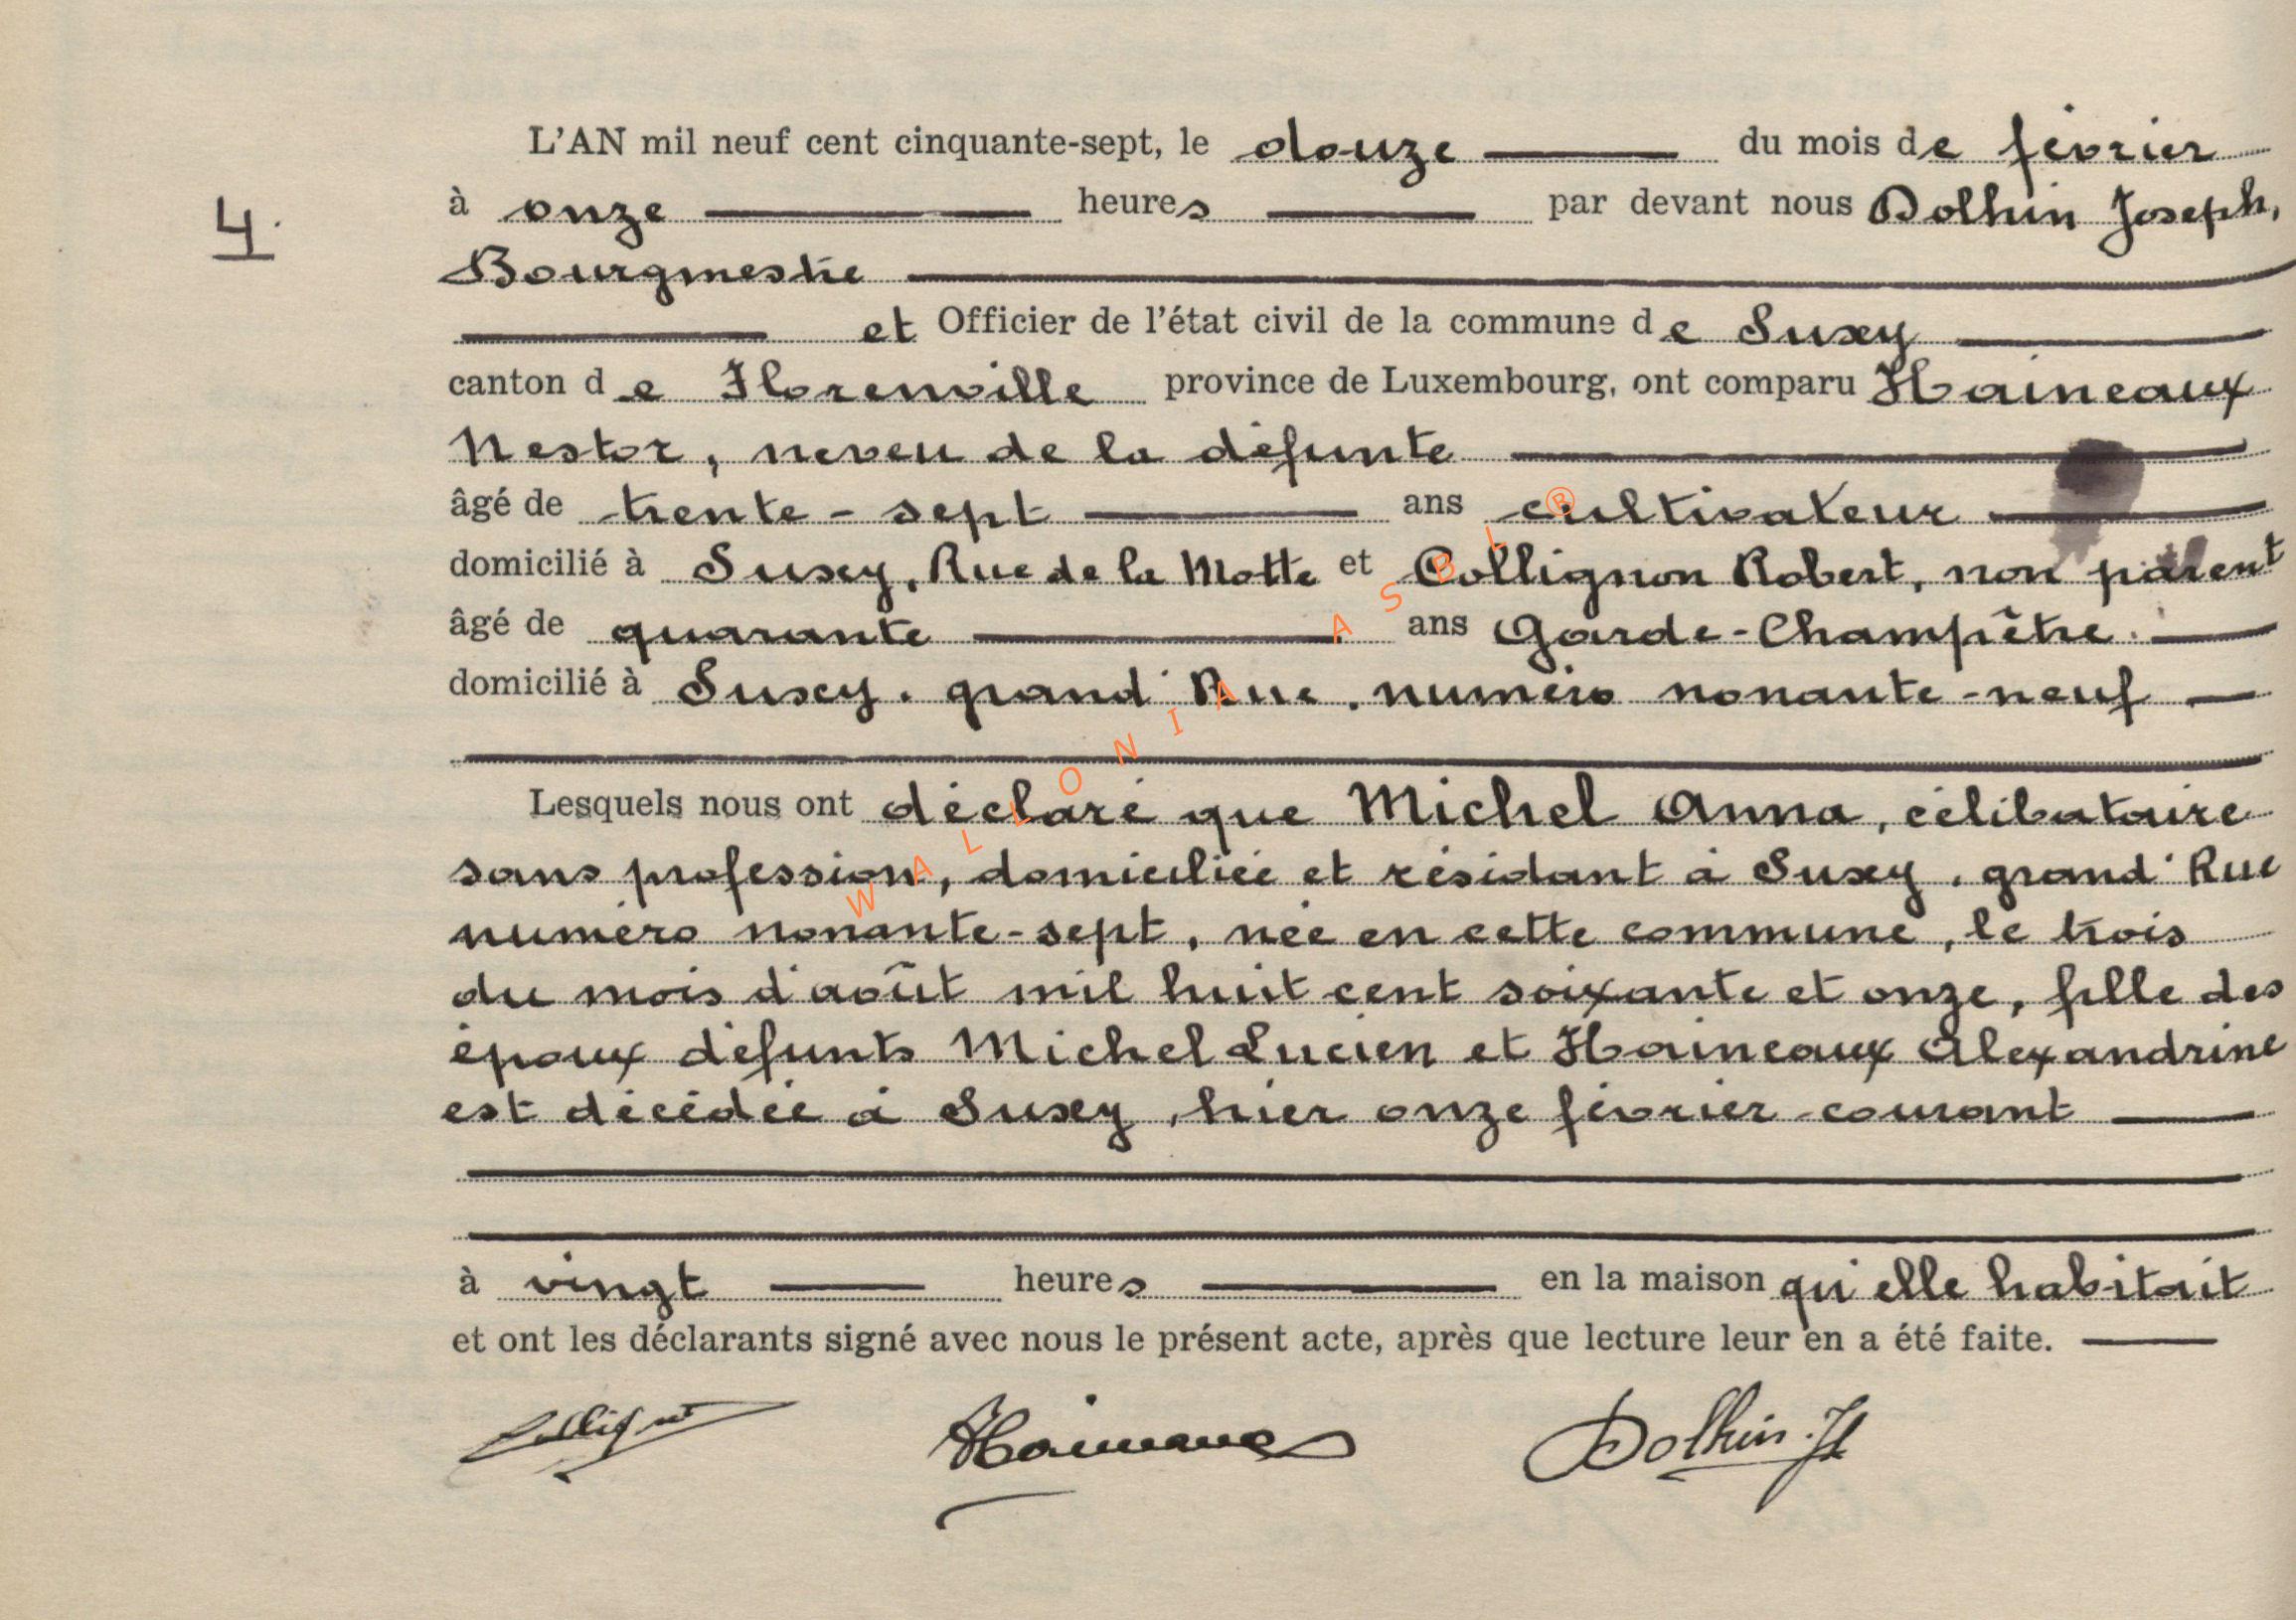 L'AN mil neuf cent cinquante-sept, le douze du mois de février
4.
à onze heures par devant nous Dolhin Joseph,
Bourgmestre
et Officier de l'état civil de la commune de Suxy
canton de Florenville province de Luxembourg, ont comparu Haineaux
Nestor, neveu de la défunte
âgé de trente-sept ans cultivateur
domicilié à Suxy, Rue de la Motte et Collignon Robert, non parent
âgé de quarante ans Garde-Champêtre.
domicilié à Suxy. grand'Rue. numéro nonante-neuf
Lesquels nous ont déclaré que Michel Anna, célibataire
sans profession, domiciliée et résidant à Suxy. grand'Rue
numéro nonante-sept, née en cette commune, le trois
du mois d'août mil huit cent soixante et onze, fille des
époux défunts Michel Lucien et Haineaux Alexandrine
est décédée à Suxy, hier onze février courant
à vingt heures en la maison qu'elle habitait
et ont les déclarants signé avec nous le présent acte, après que lecture leur en a été faite.
Haineaux Dolhin. J
WALLONIA ASBL ®